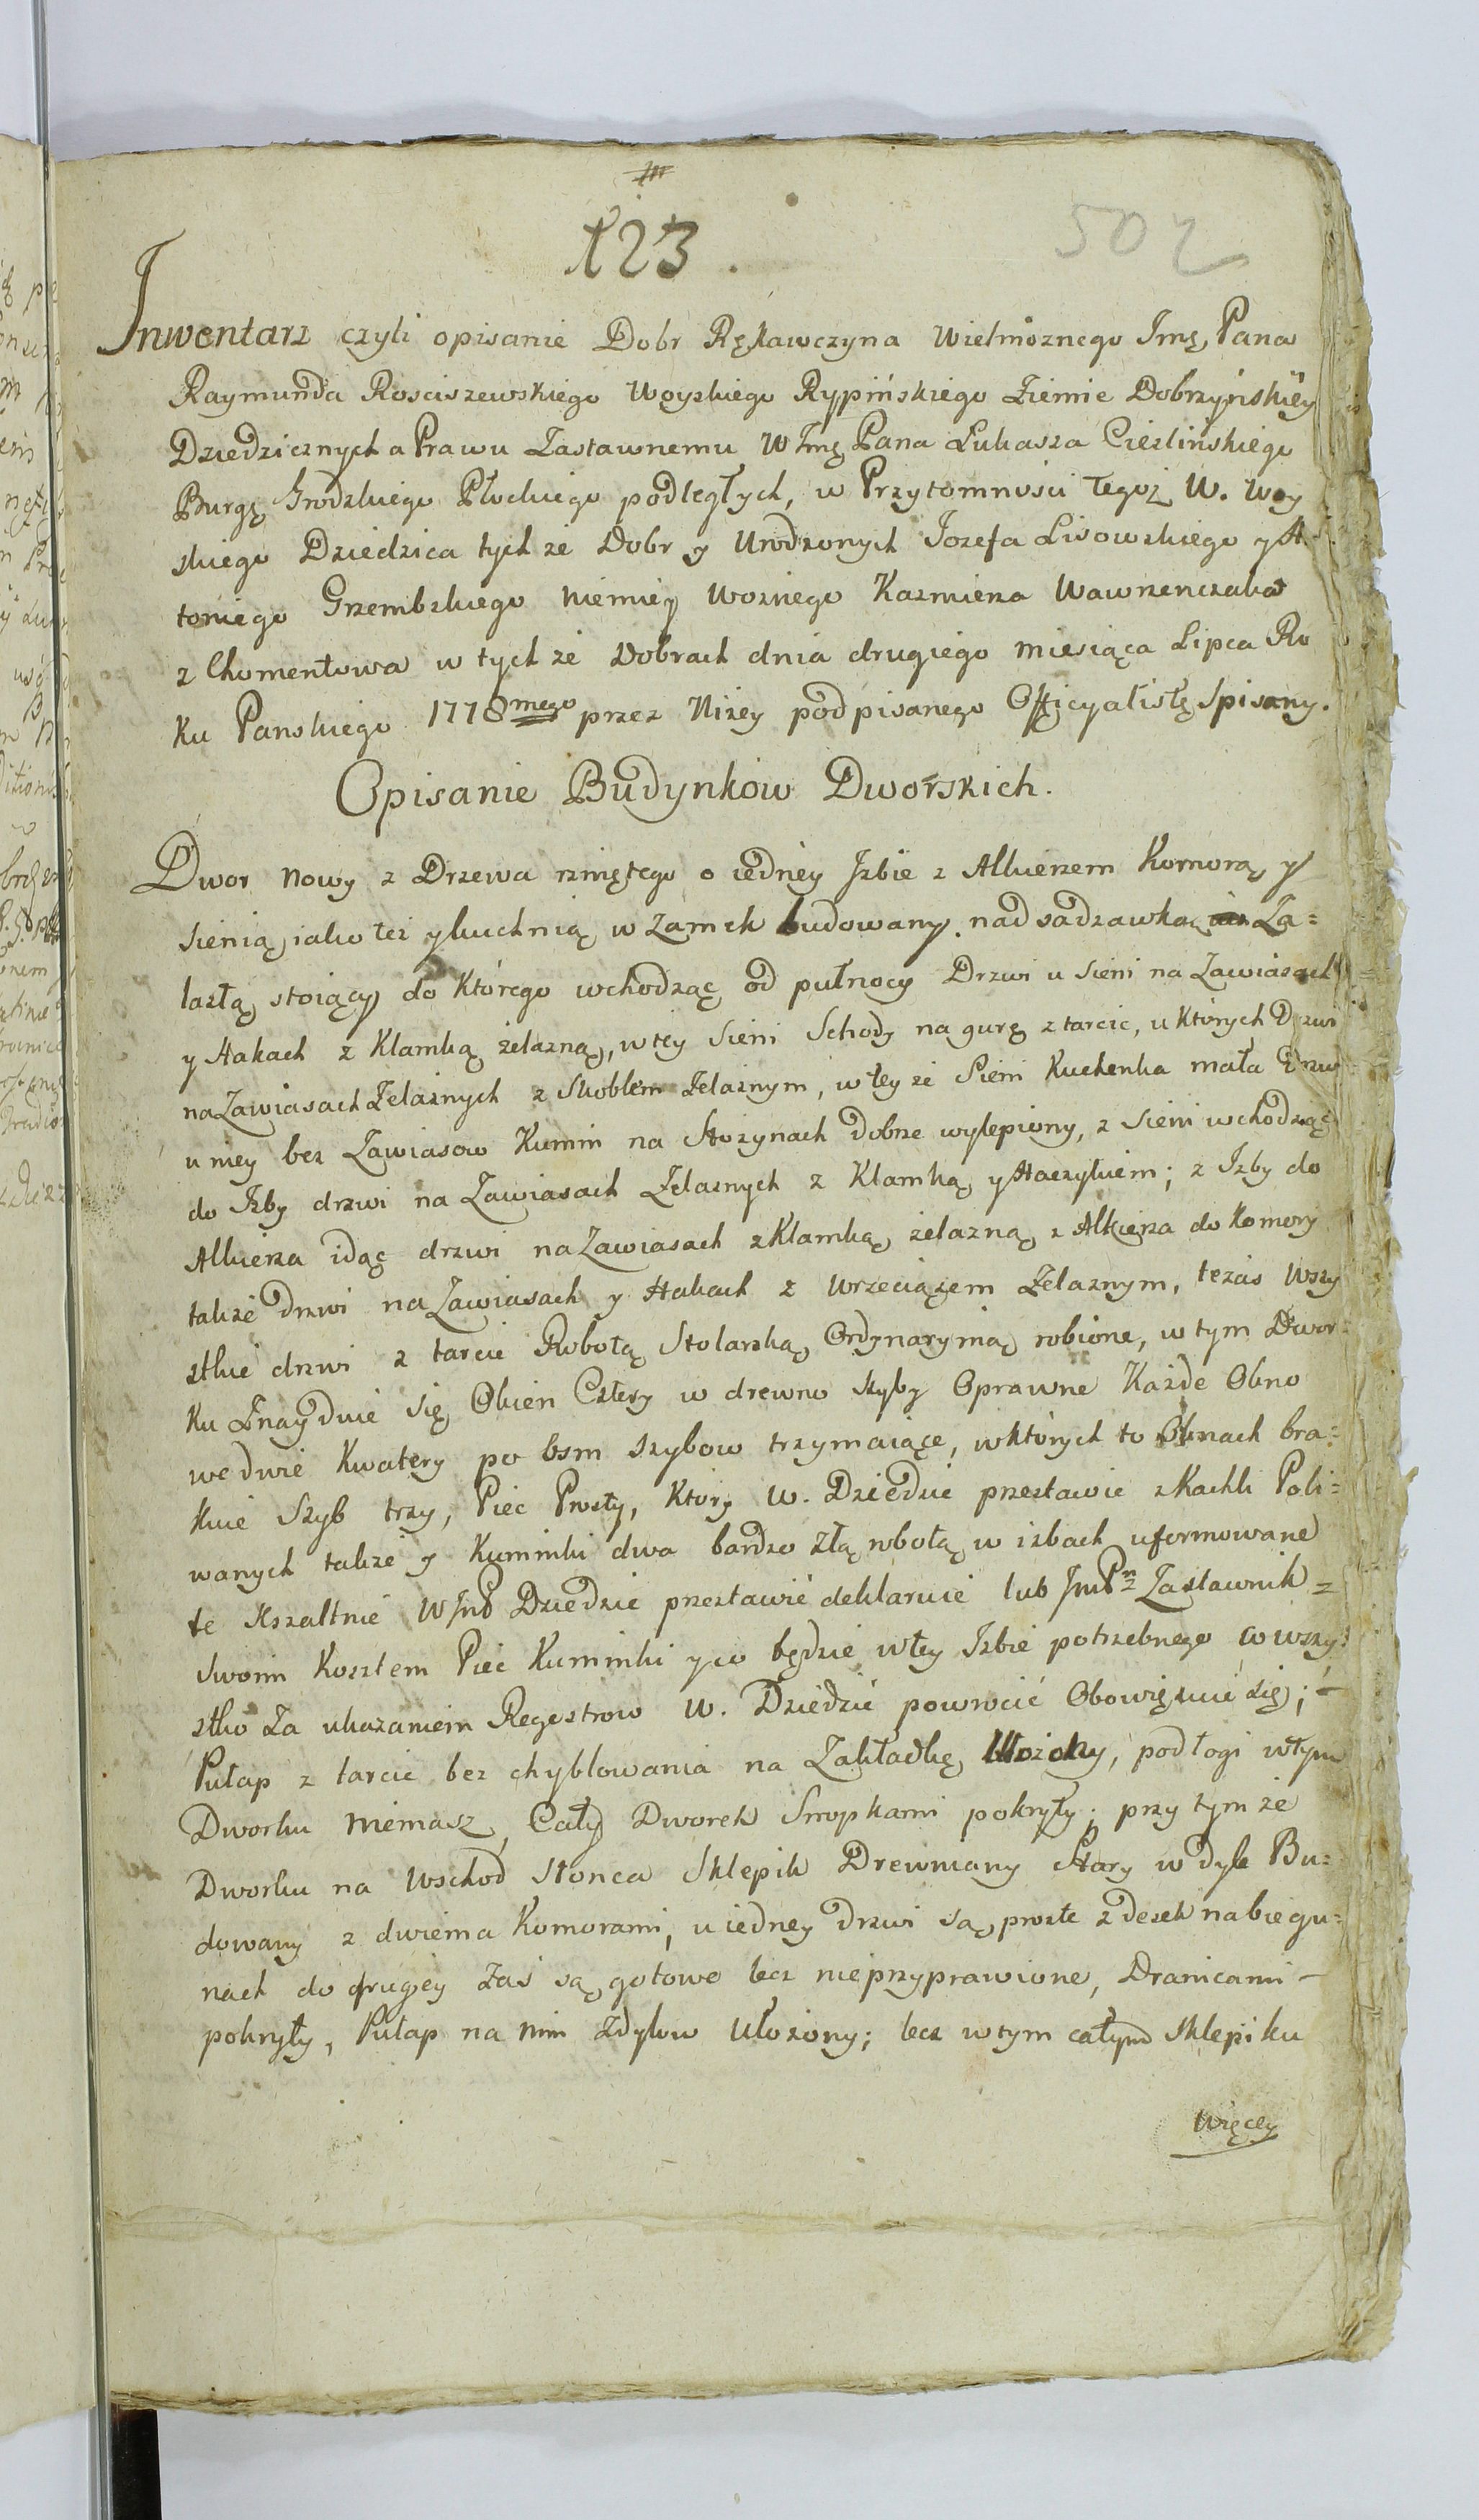 123.
502
Inwentarz czyli opisanie Dobr Rękawczyna Wielmoznego Jmę Pana
Raymunda Rosciszewskiego Woyskiego Rypińskiego Ziemie Dobrzyńskiey
Dziedzicznych a Prawu Zastawnemu W Jmę Pana Lukasza Cieslińskiego
Burgę Grodzkiego Płockiego podległych, w Przytomnosci tegoż W. Woy
skiego Dziedzica tych ze Dobr y Urodzonych Jozefa Lisowskiego y A
toniego Grzembskiego niemiey Woznego Kazmierza Wawrzenczaka
z Chomentowa w tych że Dobrach dnia drugiego miesiąca Lipca Ro
ku Panskiego 1778mego przez Niżey podpisanego Officyalistę Spisany.
Opisanie Budynkow Dworskich.
Dwor nowy z Drzewa rzniętego o iedney Izbie z Alkierzem Komorą y
sienią iako też y kuchnią w zamek budowany nad sadzawką Za=
lazłą stoiący do Którego wchodząc od pułnocy Drzwi u sieni na Zawiasach
y Hakach z Klamką żelazną, w tey Sieni Schody na gurę z tarcic, u Których Drzwi
na Zawiasach Zelaznych z Skoblem Zelaznym, w tey że Sieni Kuchenka mała Drzwi
u niey bez Zawiasow Kumin na Stozynach dobrze wylepiony, z Sieni wchodząc
do Izby drzwi na Zawiasach Zelaznych z Klamką y Haczykiem; z Izby do
Alkierza idąc drzwi na Zawiasach z Klamką żelazną z Alkierza do Komory
także drzwi na Zawiasach y Hakach z Wrzeciązem Zelaznym, tezas Wszy
stkie drzwi z tarcic Robotą Stolarską Ordynaryiną robione, w tym Dwor=
ku Znayduie się Okien Cztery w drewno szyby Oprawne Każde Okno
we dwie Kwatery po osm szybow trzymaiące, w których to Oknach bra=
kuie Szyb trzy, Piec Prosty, Ktory W. Dziedzic przestawic z Kachli Poli=
wanych także y Kuminki dwa bardzo złą robotą w izbach uformowane
te Kszałtnie WJmP Dziedzic przestawić deklaruie lub JmPn Zastawnik =
Swoim Kosztem Piec Kuminki y co będzie w tey Izbie potrzebnego co wszy=
stko Za ukazaniem Regestrow W. Dziedzic powrocić Obowięzuie się; –
Pułap z tarcic bez chyblowania na Zakładkę Ułożony, podłogi w tym
Dworku niemasz, Cały Dworek Snopkami pokryty; przy tym że
Dworku na Wschod Słonca Sklepik Drewniany Stary w dyle Bu=
dowany z dwiema Komorami, u iedney drzwi są proste z desek na biegu=
nach do drugiey zaś są gotowe lecz nieprzyprawione, Dranicami –
pokryty, Pułap na nim z dylow Ułozony; lecz w tym całym Sklepiku
więcey